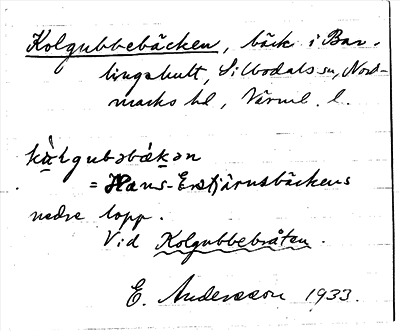 Kolgubbebäcken, bäck i Bar-
lingshult, Silbodals sn, Nord-
marks hd, Värml. l.
kòlgubəbǽkən
= Hans-Erstjärnsbäckens
nedre lopp.
Vid Kolgubbebråten.
E. Andersson 1933.